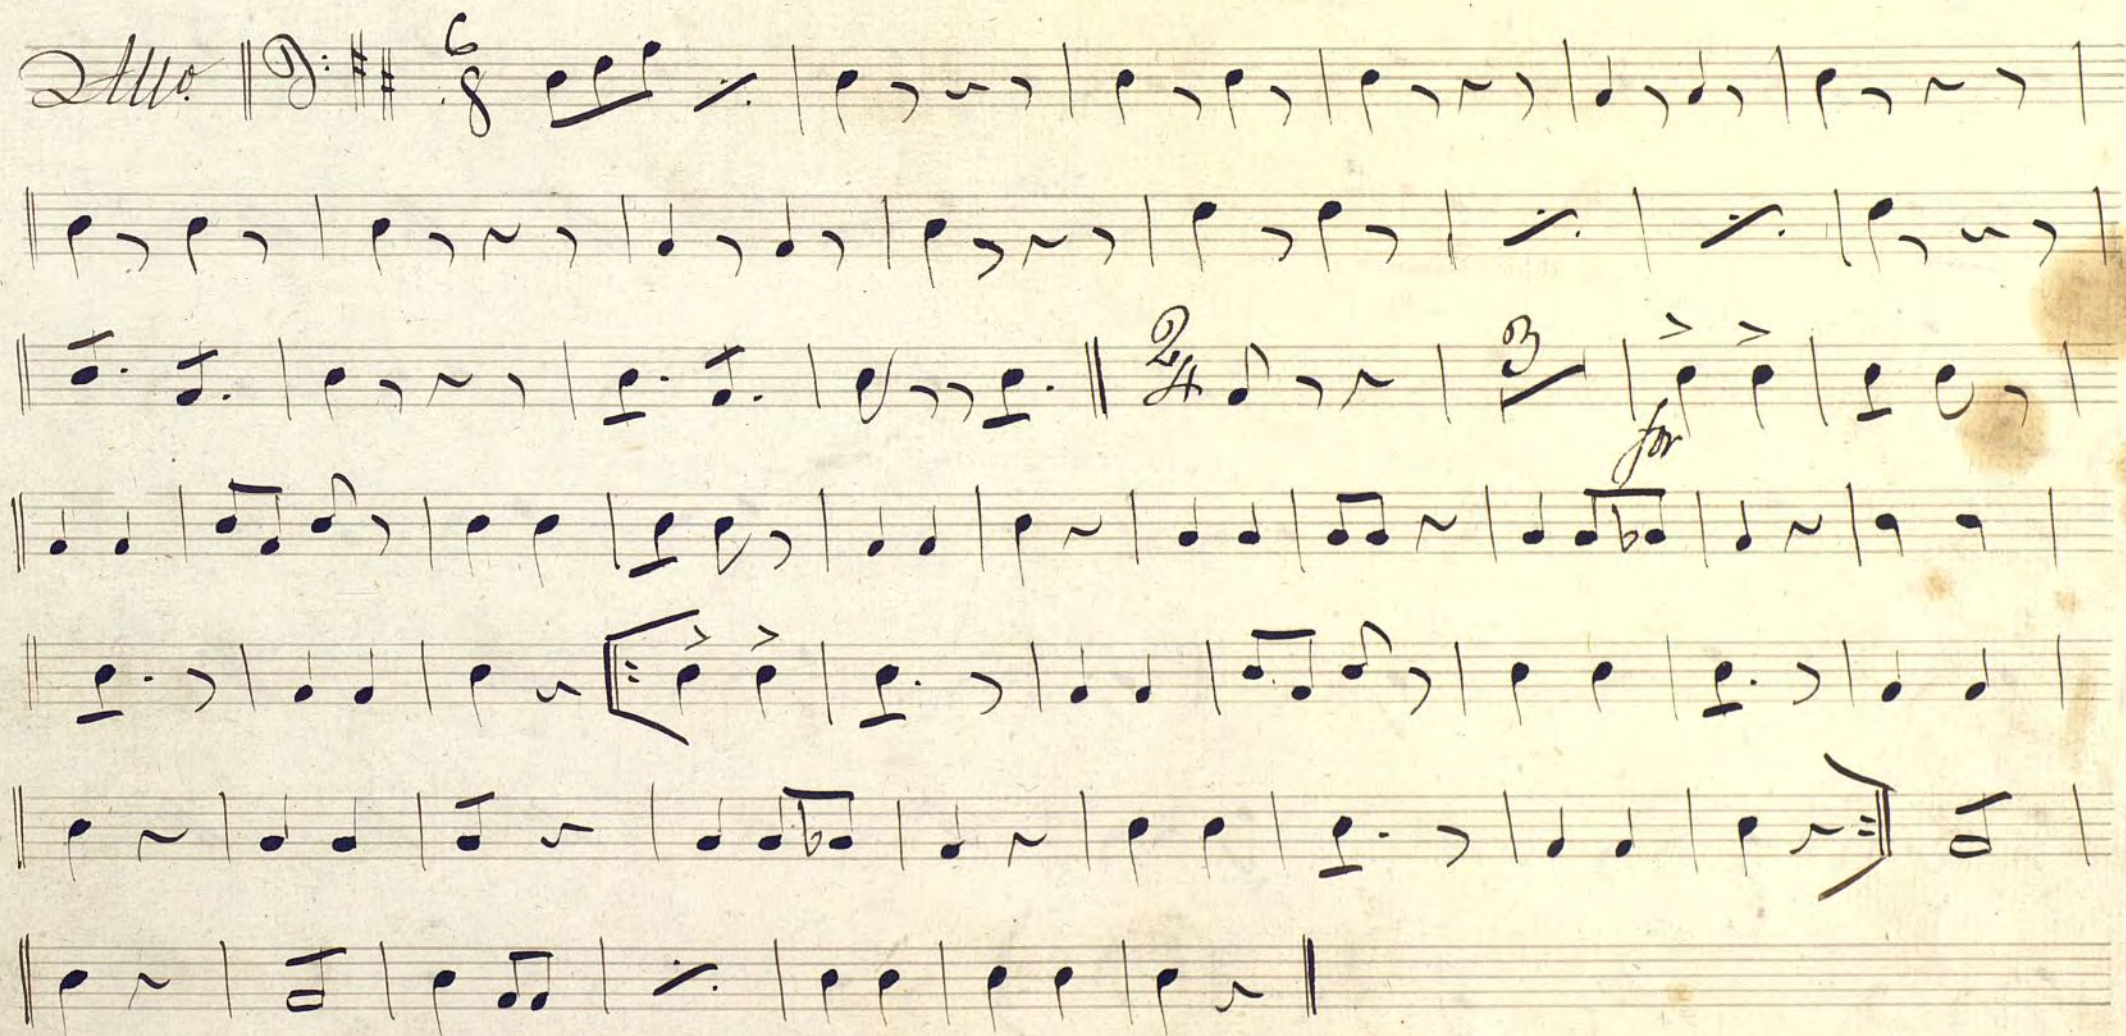 Allo.
6
8
2
4
3
for